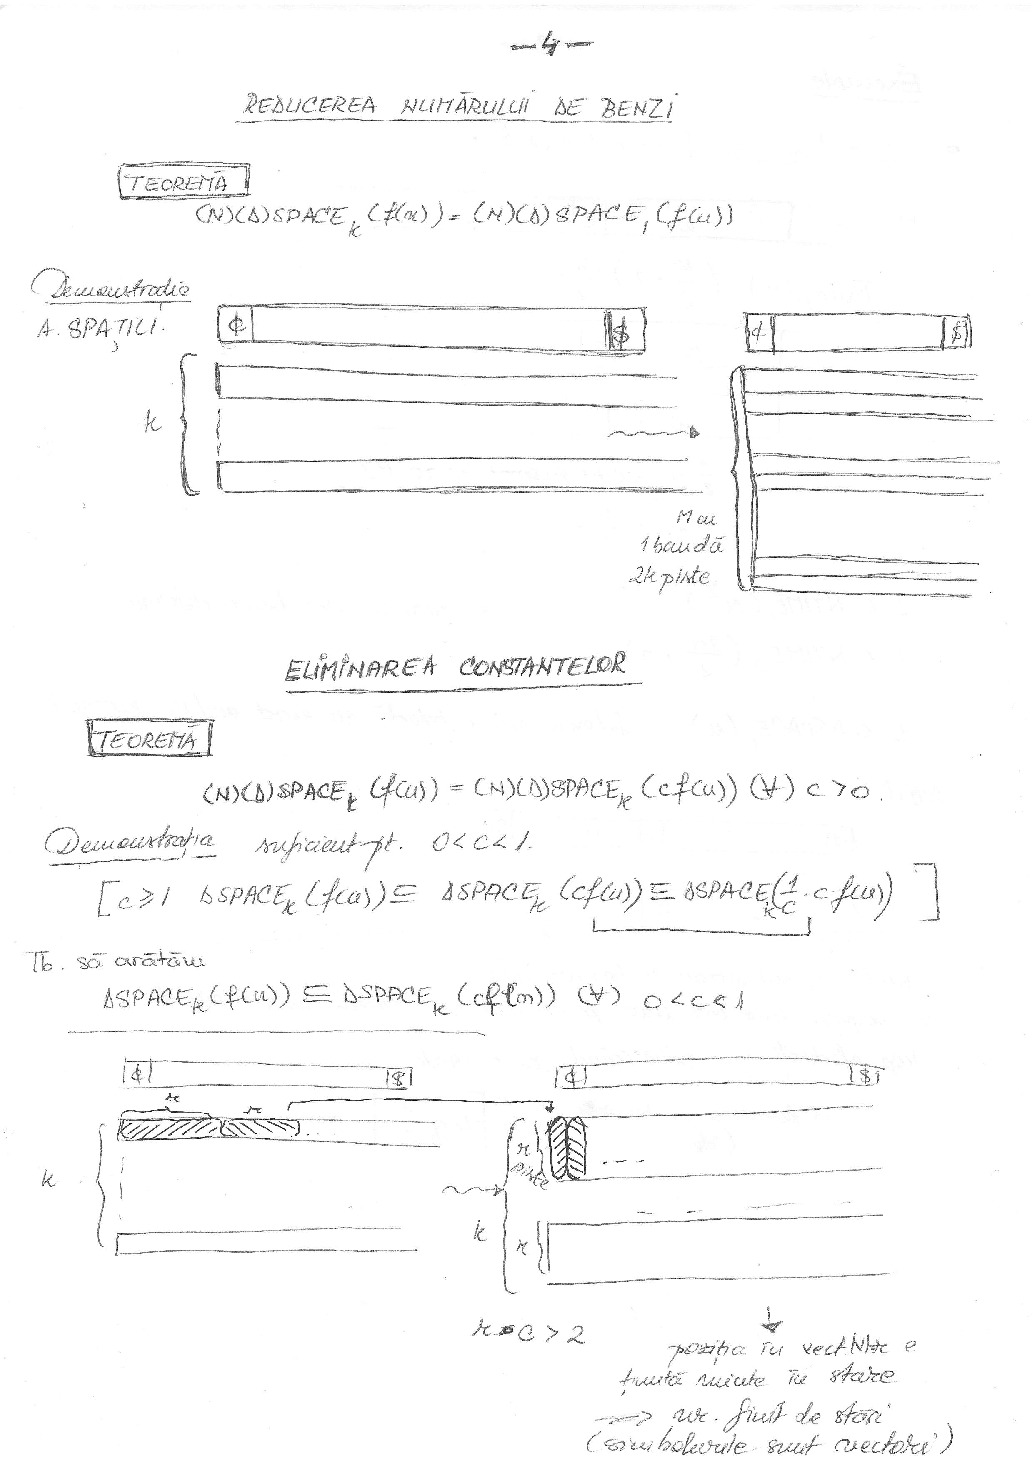 —4—
REDUCEREA NUMĂRULUI DE BENZI
TEOREMĂ
(N)(D)SPACE_k(f(n)) = (N)(D)SPACE_1(f(n))
Demonstrație
A. SPAȚIU.
¢ $
¢ $
k
M cu
1 bandă
2k piste
ELIMINAREA CONSTANTELOR
TEOREMĂ
(N)(D)SPACE_k(f(n)) = (N)(D)SPACE_k(cf(n)) (∀) c>0.
Demonstrația suficient pt. 0<c<1.
[c≥1 DSPACE_k(f(n)) ⊆ DSPACE_k(cf(n)) ⊆ DSPACE_k(1/c · c f(n))]
Tb. să arătăm
DSPACE_k(f(n)) ⊆ DSPACE_k(cf(n)) (∀) 0<c<1
¢ $
¢ $
r r
k
r
piste
k
r
r·c > 2
poziția în e
ținută minte în stare
→ nr. finit de stări
(simbolurile sunt vectori)